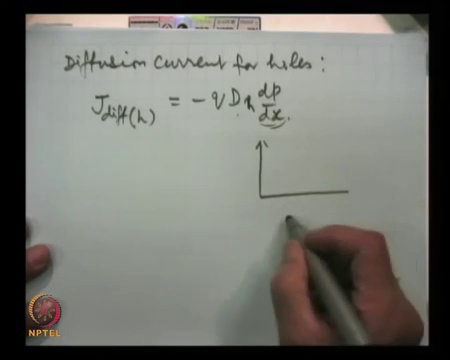 Diffusion Current for holes :
J diff(h) = - q D h dp/dx .
NPTEL